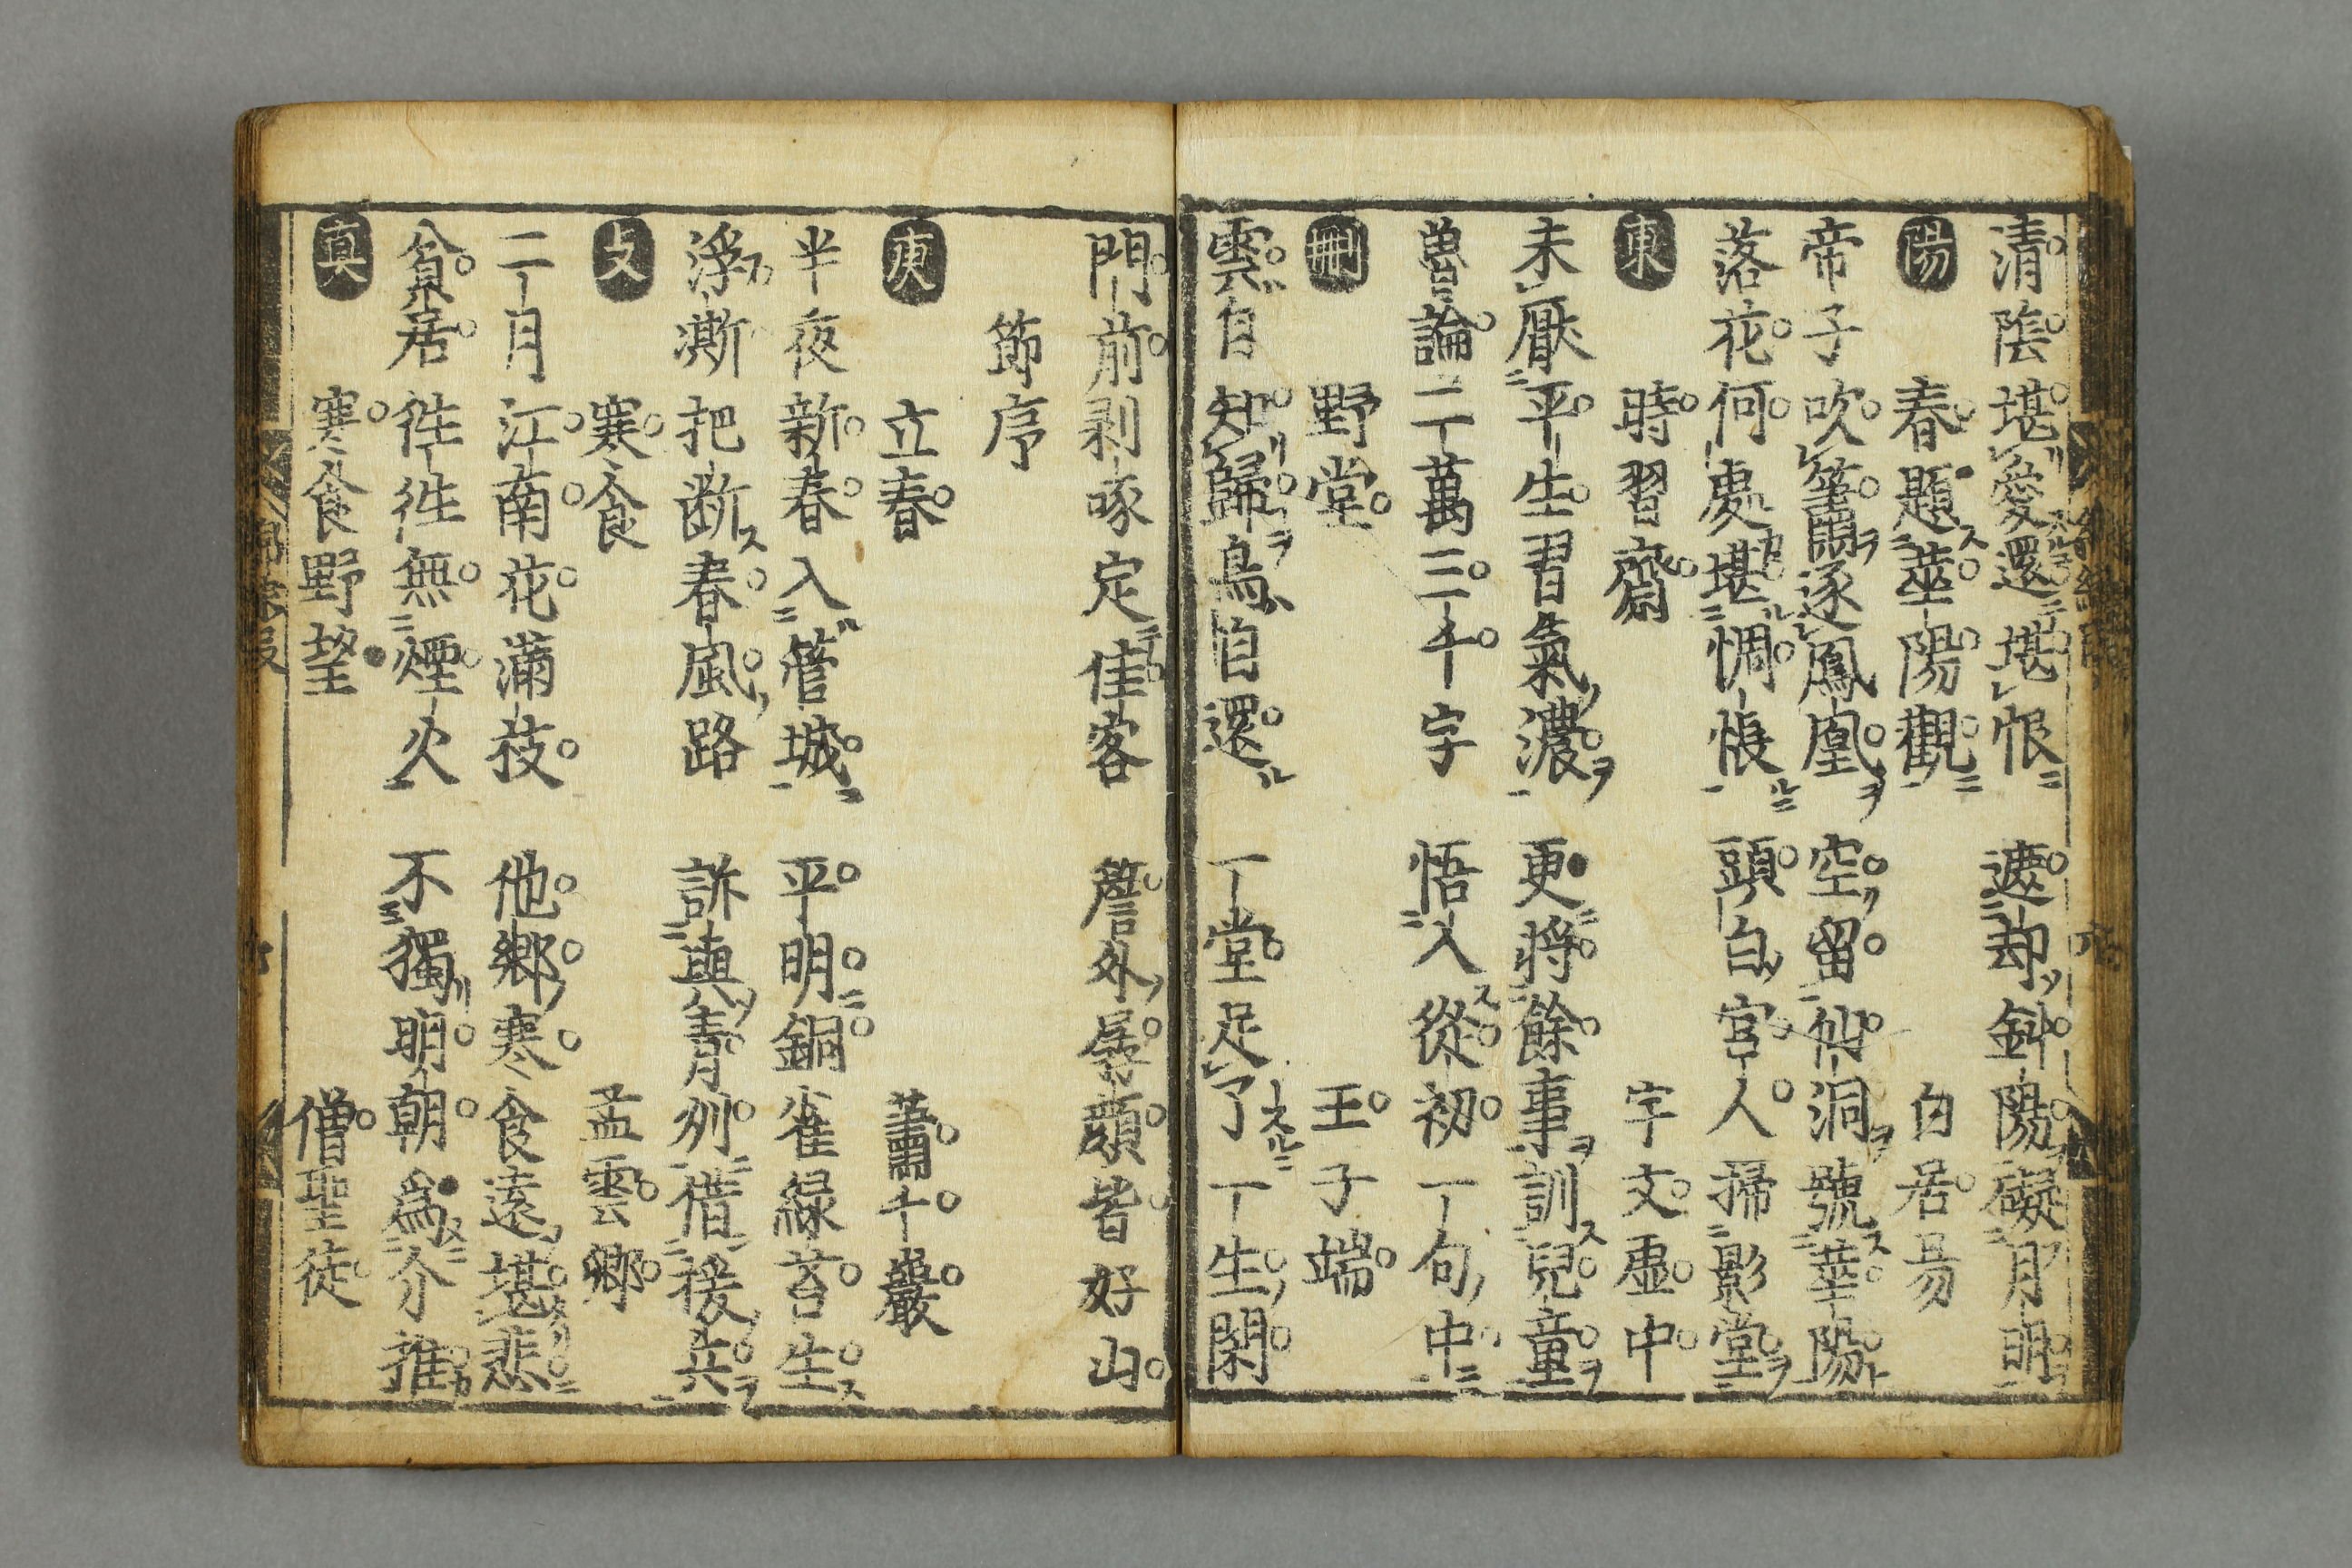 清陰堪愛還堪恨　遮却斜陽礙月明
陽　春題華陽觀　白居易
帝子吹簫逐鳳凰　空留仙洞號華陽
落花何處堪惆悵　頭白宮人掃影堂
東　時習齋　宇文虛中
未厭平生習氣濃　更將餘事訓兒童
魯論二萬三千字　悟入從初一句中
刪　野堂　王子端
雲自知歸鳥自還　一堂足了一生閑
門前剥啄定佳客　簷外孱顔皆好山
節序
庚　立春　蕭千巖
半夜新春入管城　平明銅雀綠苔生
浮澌把断春風路　訴與青州借援兵
文　寒食　孟雲卿
二月江南花滿枝　他鄉寒食遠堪悲
貧居徃徃無煙火　不獨明朝爲介推
真　寒食野望　僧聖徒